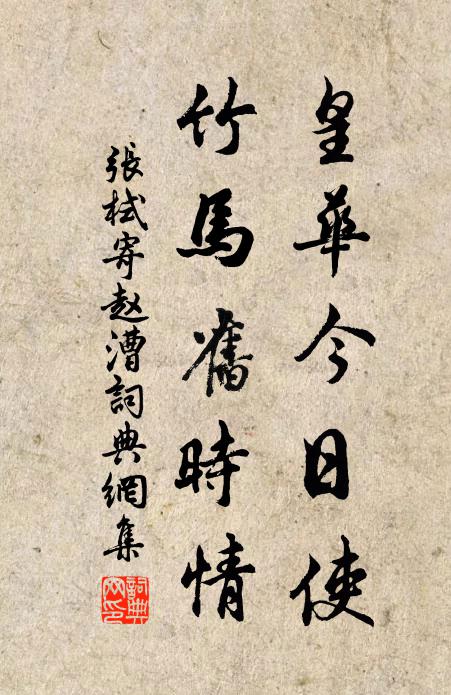 皇華今日使
竹馬舊時情
張栻寄赵漕詞典網集
詞典網印